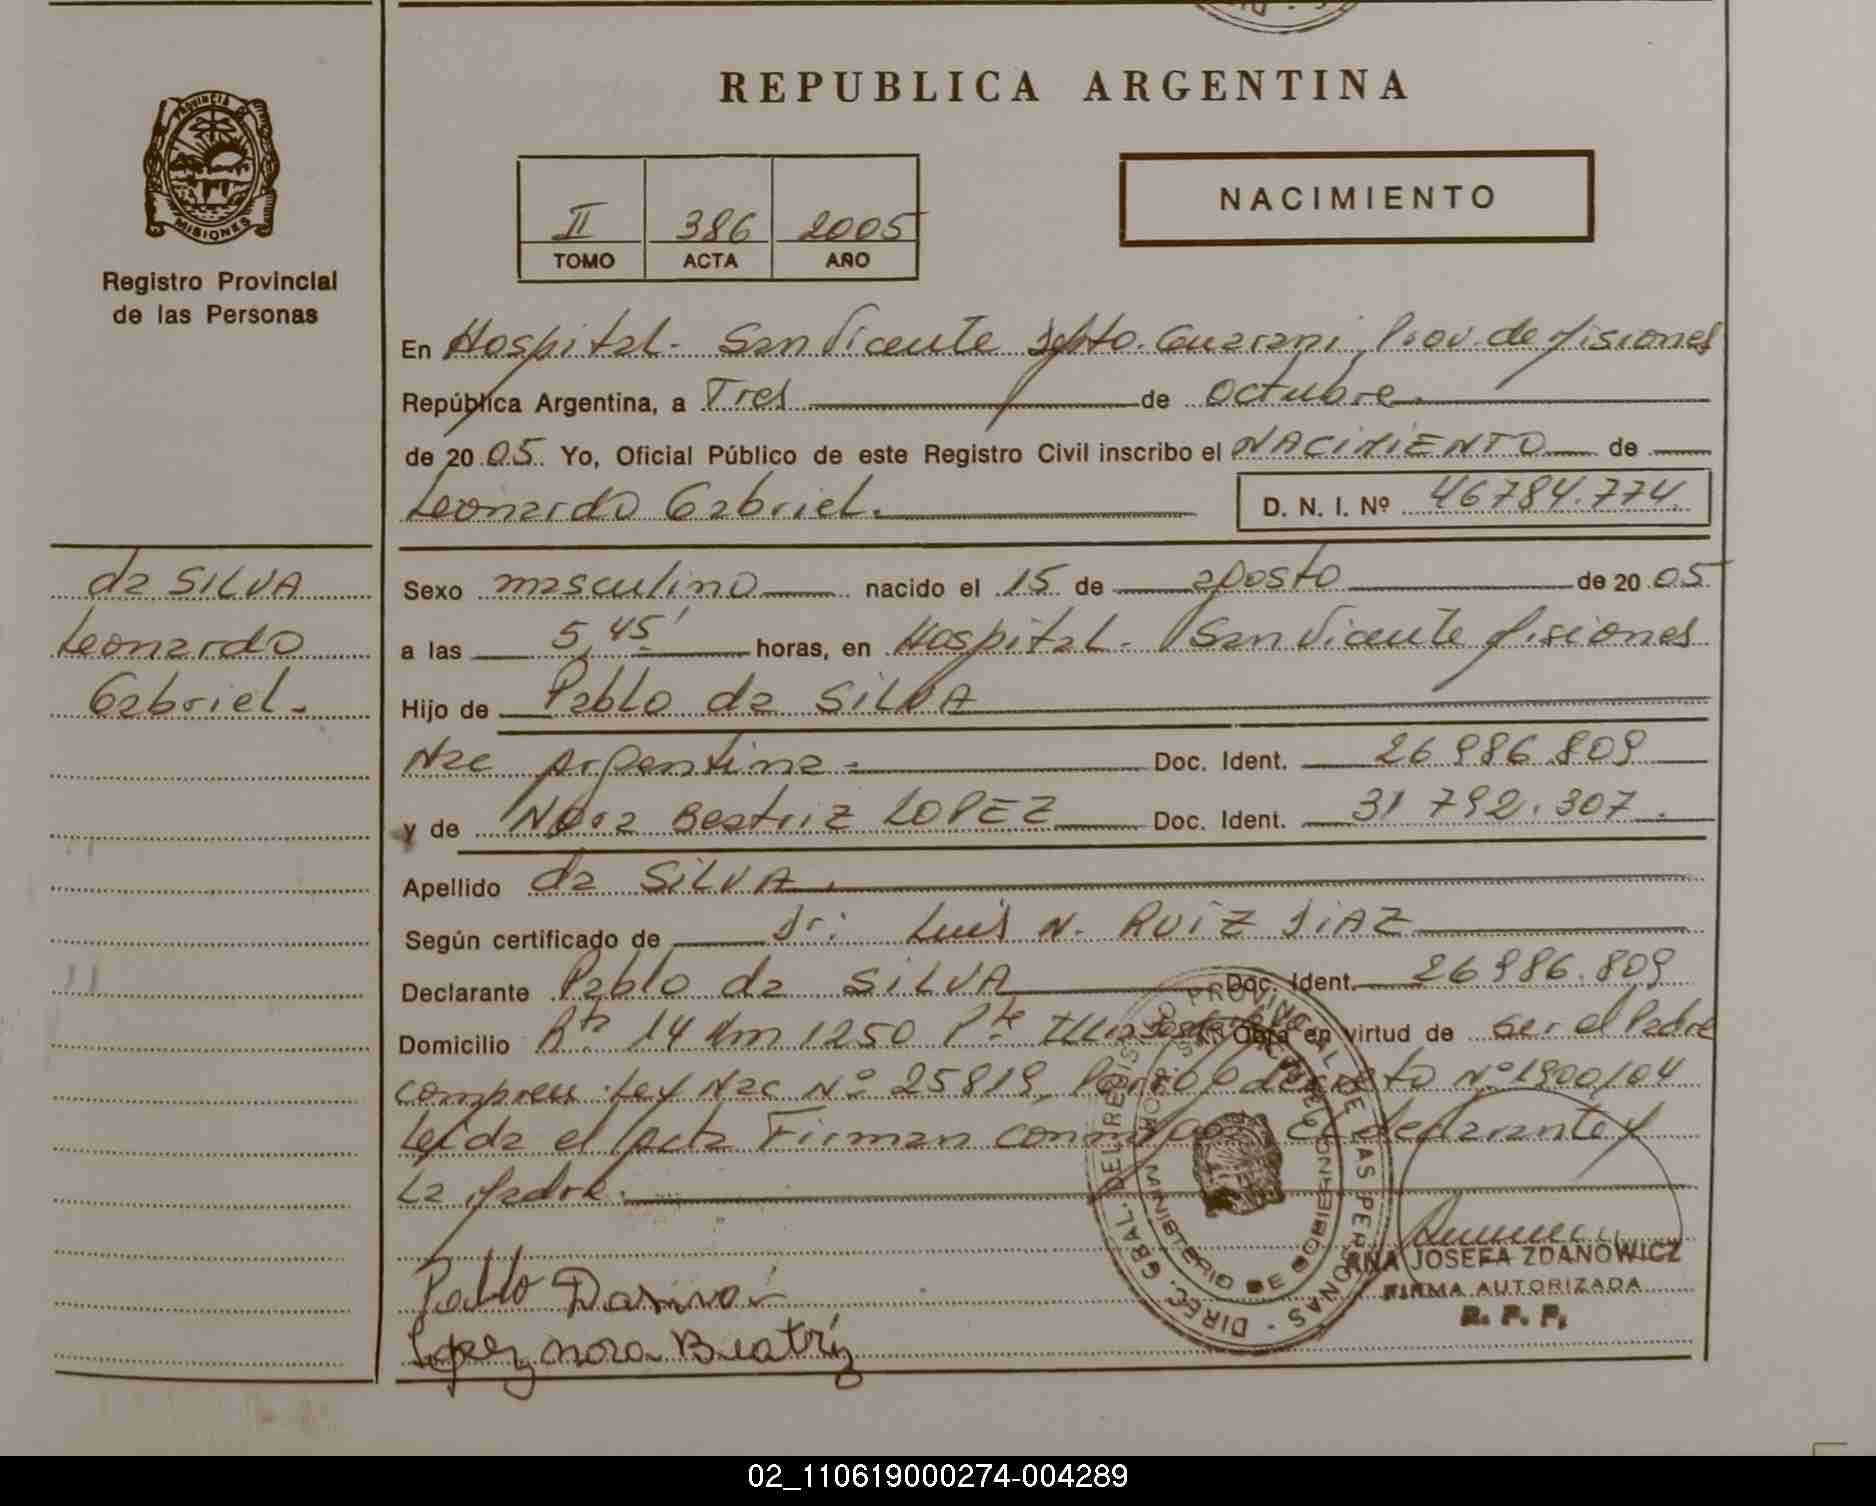 REPUBLICA ARGENTINA
PROVINCIA DE
MISIONES
Registro Provincial
de las Personas
II 386 2005
TOMO ACTA AÑO
NACIMIENTO
En Hospital - San Vicente Dpto. Guarani, Prov. de Misiones
República Argentina, a Tres de Octubre.
de 2005. Yo, Oficial Público de este Registro Civil inscribo el NACIMIENTO de
Leonardo Gabriel. D. N. I. Nº 46784.774.
da SILVA
Leonardo
Gabriel.
Sexo masculino nacido el 15 de agosto de 2005
a las 5,45' horas, en Hospital - San Vicente Misiones
Hijo de Pablo da SILVA
Nac Argentina - Doc. Ident. 26 986.809
y de Nora Beatriz LOPEZ Doc. Ident. 31 792.307.
Apellido da SILVA.
Según certificado de Dr: Luis N. RUIZ DIAZ
Declarante Pablo da SILVA Doc. Ident. 26 986.809
Domicilio Rta 14 Km 1250 Pte Obra en virtud de ser el Padre
Ley Nac Nº 25819, decreto Nº 1900/04
Leida el Acta Firman conmigo El declarante y
La Madre.
Pablo Dasirva
Lopez nora Beatriz
DIREC. GBAL. DEL REGISTRO PROVINCIAL DE LAS PERSONAS -
MINISTERIO DE GOBIERNO
ANA JOSEFA ZDANOWICZ
FIRMA AUTORIZADA
R. P. P.
02_110619000274-004289